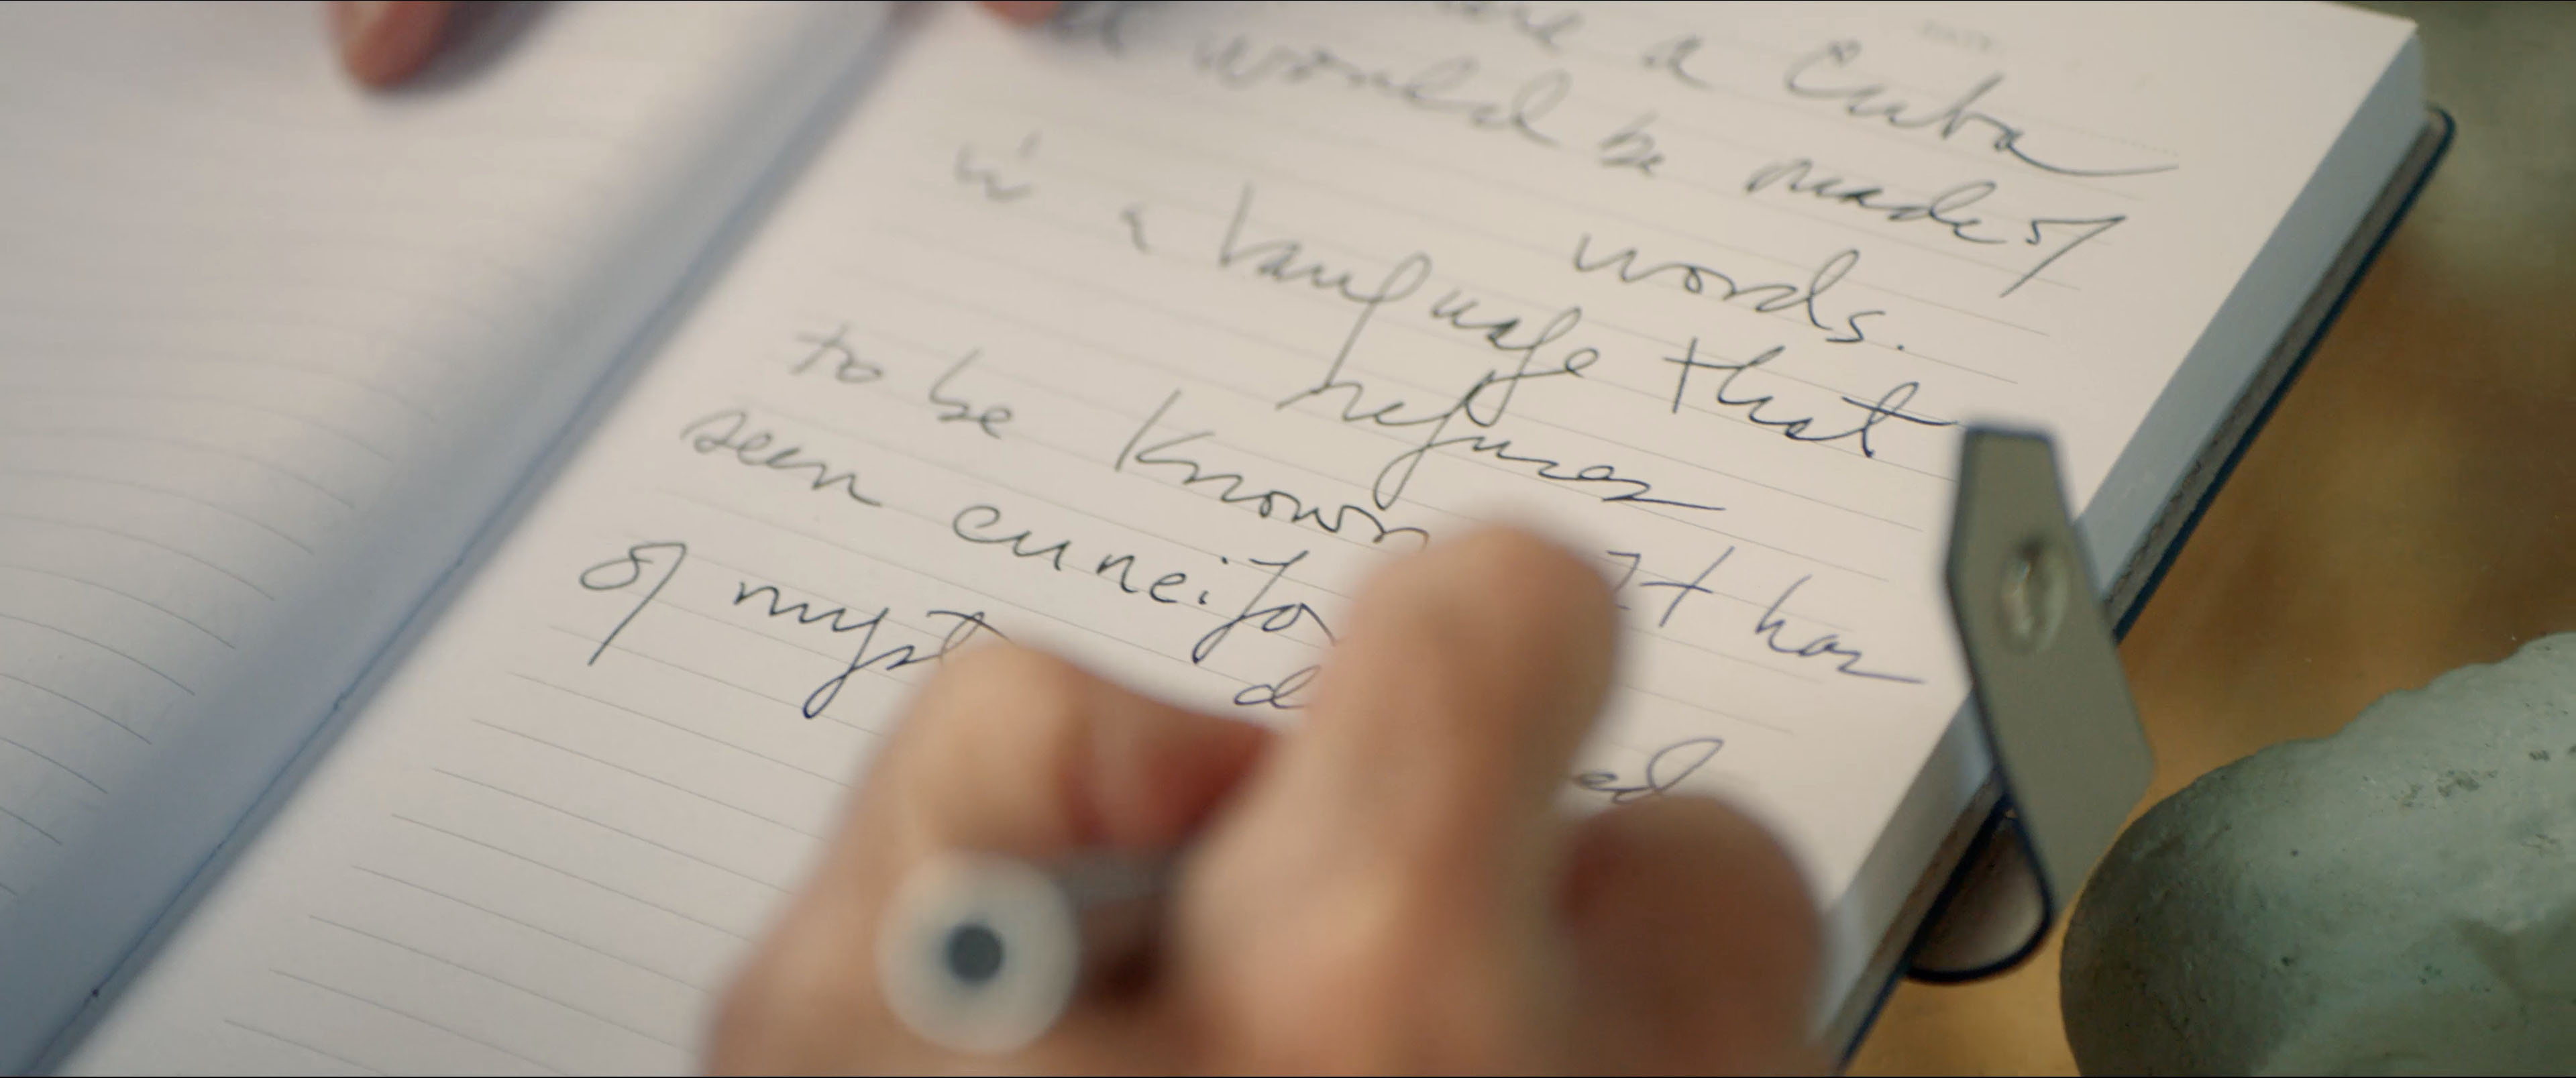 a Cuba
would be made of
words.
is a language that
refuses
to be known It has
seen cuneifo
of myst d ed